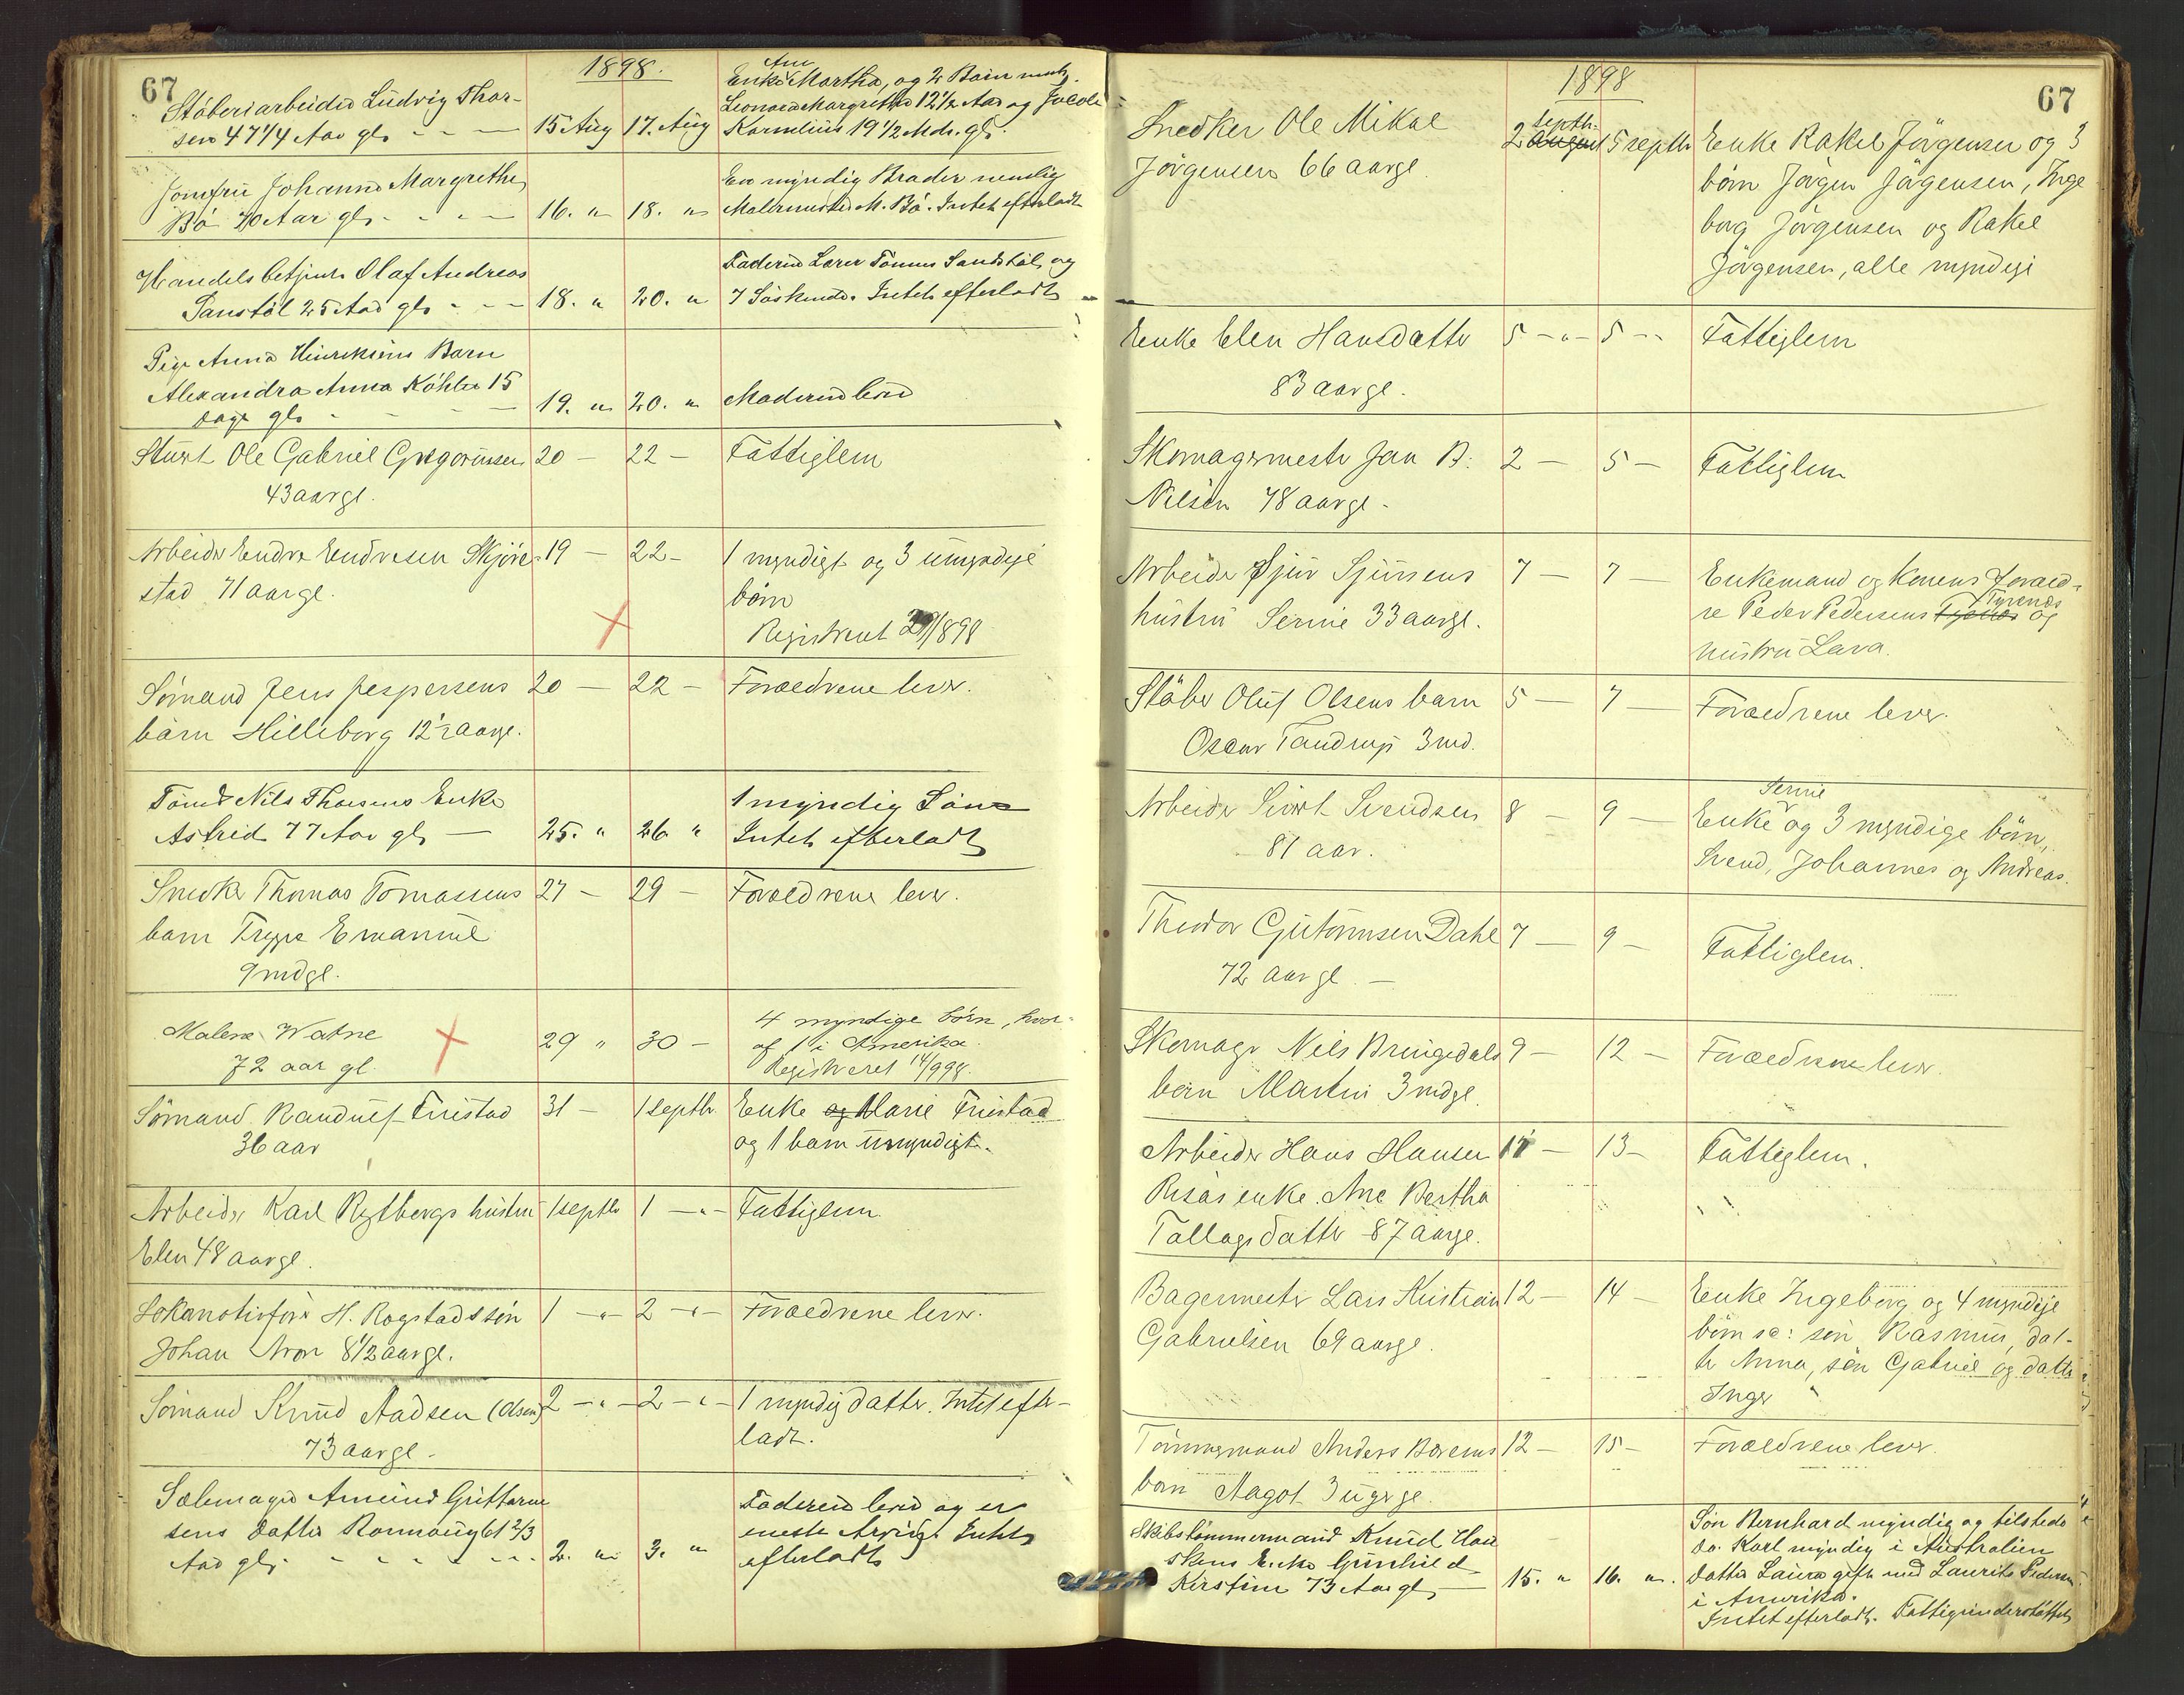 67
1898.
Støberiarbeider Ludvig Thor-
sen 47 1/4 Aar gl. - - — 15 Aug 17. Aug
Ane
Enke Martha, og 2 Børn
Leonora Margrethe 12 1/2 Aar og Jacob
Kornelius 19 1/2 Mdr. gl.
Jomfru Johanne Margrethe
Bø 70 Aar gl. - - - — 16. " 18. "
En myndig Broder nemlig
Malermester M. Bø. Intet efterladt
Handelsbetjent Olaf Andreas
Sanstøl 25 Aar gl. - - — 18. " 20. "
Faderen Lærer Tønnes Sandstøl og
7 Søskende. Intet efterladt
Pige Anna Hinriksens Barn
Alexandra Anna Køhler 15
Dage gl. - - - — 19. " 20. " Moderen lever
Stuert Ole Gabriel Gregoriussen 20 — 22 — Fattiglem
43 aar gl.
Arbeider Endre Endresen Skjøre- 19 — 22 — 1 myndigt og 3 umyndige
stad 71 aar gl. børn
Registreret 29/898
Sømand Jens Jespersens 20 — 22 — Forældrene lever.
barn Hilleborg 12 1/2 aar gl.
Tømr Nils Thorsens Enke 1 myndig Søn
Astrid 77 Aar gl. — 25. " 26 " Intet efterladt
Snedker Thomas Tomassens 27 — 29 — Forældrene lever.
barn Trygve Emanuel
9 mdgl.
Malene Watne 29 " 30 — 4 myndige børn, hvor-
72 aar gl. af 1 i Amerika.
Registreret 14/998.
Sømand Randulf Fuistad 31 — 1 septbr Enke og Marie Fuistad
36 aar og 1 barn umyndigt.
Arbeider Karl Rytbergs hustru 1 septbr 1 — " — Fattiglem
Elen 48 aar gl.
Lokomotivfører H. Rogstads søn 1 — " 2 — " — Forældrene lever.
Johan Aron 8 1/2 aar gl.
Sømand Knud Aadsen (Olsen) 2 — " — 2 — " — 1 myndig datter. Intet efter-
73 aar gl. — ladt.
Salmager Amund Guttorm
sens Datter Rannaug 61 2/3
Aar gl. - - - - 2. " 3. "
Faderen lever og er
eneste Arving. Intet
efterladt
67
1898
Snedker Ole Mikal septbr.
Jørgensen 66 aar gl. 2 august 5 septbr Enke Rakel Jørgensen og 3
børn Jørgen Jørgensen, Inge
borg Jørgensen og Rakel
Jørgensen, alle myndige
Enke Elen Hansdatter 5 — " — 5 — " Fattiglem
83 aar gl.
Skomagermester Jan B. 2 — 5 — Fattiglem
Nilsen 78 aar gl. -
Arbeider Sjur Sjursens 7 — 7 — Enkemand og konens foræld-
hustru Serine 33 aar gl. re Peder Pedersens Tysnes Tysnes og
hustru Lava.
Støber Oluf Olsens barn 5 — 7 — Forældrene lever.
Oscar Tandrup 3 md.
Arbeider Sivert Svendsen 8 — 9 — Enke Serine og 3 myndige børn,
81 aar. Svend, Johannes og Andreas.
Theodor Guttormsen Dahl 7 — 9 — Fattiglem.
72 aar gl. —
Skomager Nils Bringedals 9 — 12 — Forældrene lever.
barn Martin 3 mdgl.
Arbeider Hans Hansen 11 — 13 — Fattiglem.
Risas enke. Ane Bertha
Tallagsdatter 87 aar gl.
Bagermester Lars Kristian 12 — 14 — Enke Ingeborg og 4 myndige
Gabrielsen 69 aar gl. børn sc: søn Rasmus, dat-
ter Anna, søn Gabriel og datter
Inger
Tømmermand Anders Børems 12 — 15 — Forældrene lever.
barn Aagot 3 uger gl.
Skibstømmermand Knud Hau
skens Enke Gunhild
Kirstine 73 Aar gl. — 15. " 16. "
Søn Bernhard myndig og tilstede
do. Karl myndig i Australien
Datter Laura gift med Laurits Pedersen
i Amerika.
Intet efterladt. Fattigunderstøttet